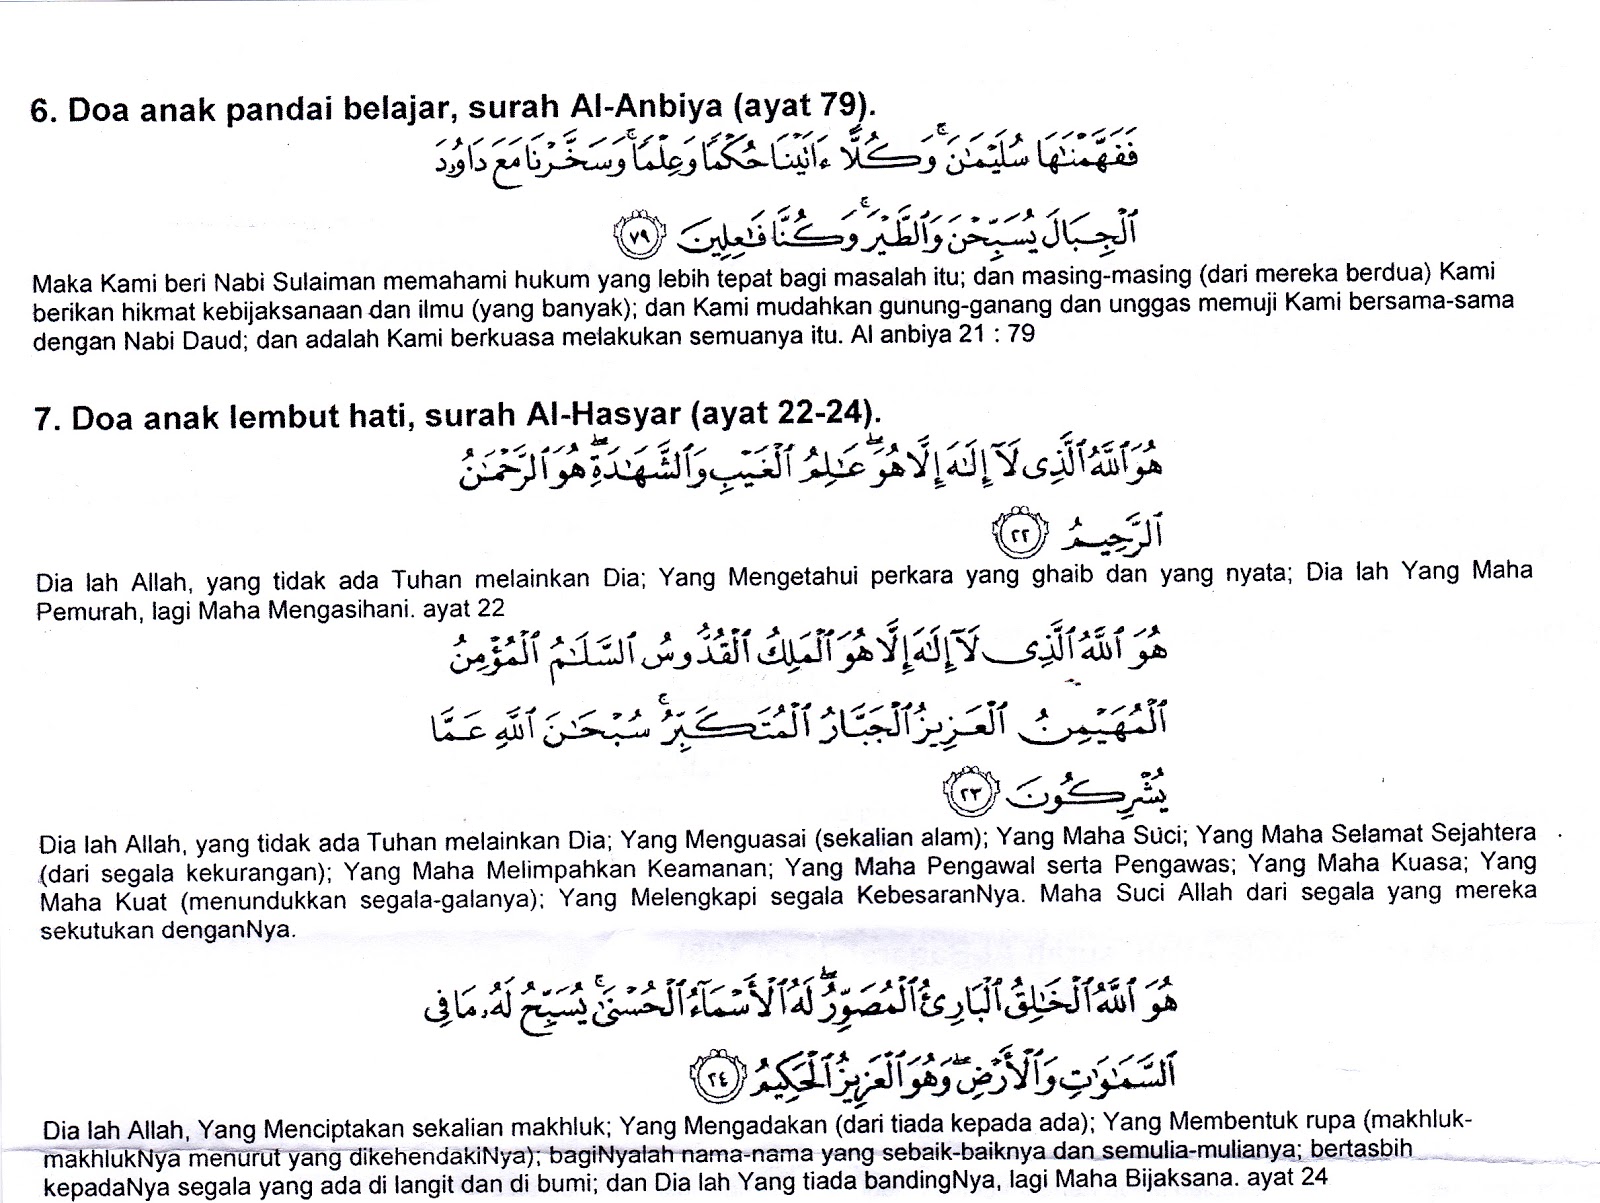 6. Doa anak pandai belajar, surah Al-Anbiya (ayat 79).
فَفَهَّمْنَٰهَا سُلَيْمَٰنَ ۚ وَكُلًّا ءَاتَيْنَا حُكْمًا وَعِلْمًا ۚ وَسَخَّرْنَا مَعَ دَاوُۥدَ
ٱلْجِبَالَ يُسَبِّحْنَ وَٱلطَّيْرَ ۚ وَكُنَّا فَٰعِلِينَ ٧٩
Maka Kami beri Nabi Sulaiman memahami hukum yang lebih tepat bagi masalah itu; dan masing-masing (dari mereka berdua) Kami
berikan hikmat kebijaksanaan dan ilmu (yang banyak); dan Kami mudahkan gunung-ganang dan unggas memuji Kami bersama-sama
dengan Nabi Daud; dan adalah Kami berkuasa melakukan semuanya itu. Al anbiya 21 : 79
7. Doa anak lembut hati, surah Al-Hasyar (ayat 22-24).
هُوَ ٱللَّهُ ٱلَّذِى لَآ إِلَٰهَ إِلَّا هُوَ ۖ عَٰلِمُ ٱلْغَيْبِ وَٱلشَّهَٰدَةِ ۖ هُوَ ٱلرَّحْمَٰنُ
ٱلرَّحِيمُ ٢٢
Dia lah Allah, yang tidak ada Tuhan melainkan Dia; Yang Mengetahui perkara yang ghaib dan yang nyata; Dia lah Yang Maha
Pemurah, lagi Maha Mengasihani. ayat 22
هُوَ ٱللَّهُ ٱلَّذِى لَآ إِلَٰهَ إِلَّا هُوَ ٱلْمَلِكُ ٱلْقُدُّوسُ ٱلسَّلَٰمُ ٱلْمُؤْمِنُ
ٱلْمُهَيْمِنُ ٱلْعَزِيزُ ٱلْجَبَّارُ ٱلْمُتَكَبِّرُ ۚ سُبْحَٰنَ ٱللَّهِ عَمَّا
يُشْرِكُونَ ٢٣
Dia lah Allah, yang tidak ada Tuhan melainkan Dia; Yang Menguasai (sekalian alam); Yang Maha Suci; Yang Maha Selamat Sejahtera
(dari segala kekurangan); Yang Maha Melimpahkan Keamanan; Yang Maha Pengawal serta Pengawas; Yang Maha Kuasa; Yang
Maha Kuat (menundukkan segala-galanya); Yang Melengkapi segala KebesaranNya. Maha Suci Allah dari segala yang mereka
sekutukan denganNya.
هُوَ ٱللَّهُ ٱلْخَٰلِقُ ٱلْبَارِئُ ٱلْمُصَوِّرُ ۖ لَهُ ٱلْأَسْمَآءُ ٱلْحُسْنَىٰ ۚ يُسَبِّحُ لَهُۥ مَا فِى
ٱلسَّمَٰوَٰتِ وَٱلْأَرْضِ ۖ وَهُوَ ٱلْعَزِيزُ ٱلْحَكِيمُ ٢٤
Dia lah Allah, Yang Menciptakan sekalian makhluk; Yang Mengadakan (dari tiada kepada ada); Yang Membentuk rupa (makhluk-
makhlukNya menurut yang dikehendakiNya); bagiNyalah nama-nama yang sebaik-baiknya dan semulia-mulianya; bertasbih
kepadaNya segala yang ada di langit dan di bumi; dan Dia lah Yang tiada bandingNya, lagi Maha Bijaksana. ayat 24